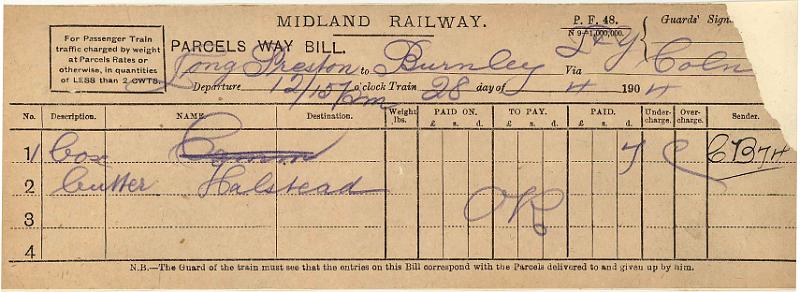 MIDLAND RAILWAY.
P. F. 48.
N 9—1,000,000.
Guards' Sign
For Passenger Train
traffic charged by weight
at Parcels Rates or
otherwise, in quantities
of LESS than 2 CWTS.
PARCELS WAY BILL.
Long Preston to Burnley Via Coln
Departure 12/15 pm o'clock Train 28 day of 4 1904
No. Description. NAME. Destination. Weight lbs. PAID ON. TO PAY. PAID. Under-charge. Over-charge. Sender.
£ s. d. £ s. d. £ s. d.
1
2 Halstead
3
4
N.B.—The Guard of the train must see that the entries on this Bill correspond with the Parcels delivered to and given up by him.